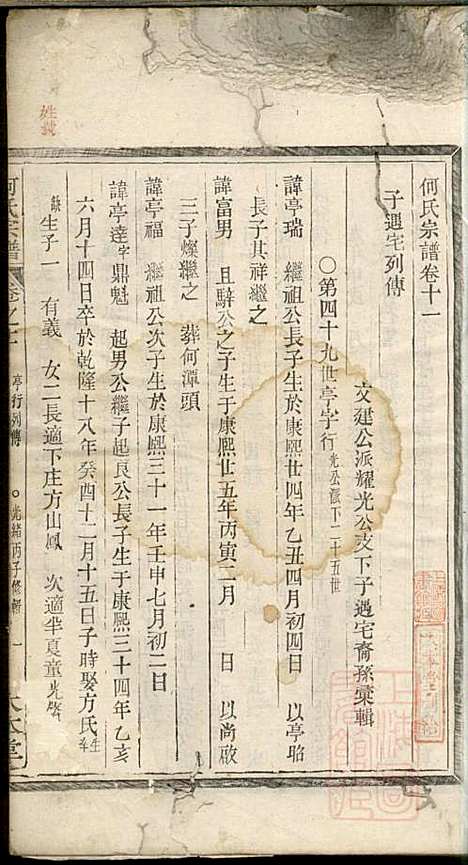 何氏宗譜卷十一
子遇宅列傳
文建公派耀光公支下子遇宅裔孫彙輯
○第四十九世亭字行光公派下二十五世
諱亭瑞 繼祖公長子生於康熙廿四年乙丑四月初四日 以亭昭
長子其祥繼之
諱富男 且騂公之子生于康熙廿五年丙寅二月 日 以尚啟
三子燦繼之 葬何潭頭
諱亭福 繼祖公次子生於康熙三十一年壬申七月初二日
諱亭逵字鼎魁 起男公繼子起良公長子生于康熙三十四年乙亥
六月十四日卒於乾隆十八年癸酉十二月十五日子時娶方氏生卒
生子一 有義 女二長適下庄方山鳳 次適半夏童光
何氏宗譜 卷之十一 亭行列傳 ○光緒丙子修輯 一 大本堂
姓氏